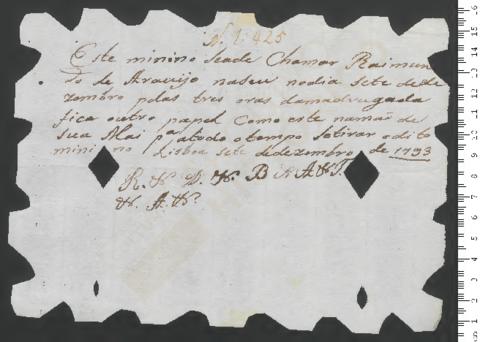 N. 1:425
Este minino seade Chamar Raimun
do de Araujo naseu nodia sete dede
zembro pelas tres oras damadrugada
fica outro papel Como este namaõ de
sua Mei pa atodo otempo setirar odito
minino Lisboa sete dedezembro de 1793
R. N. D. N. B N A N T.
N. A. N.